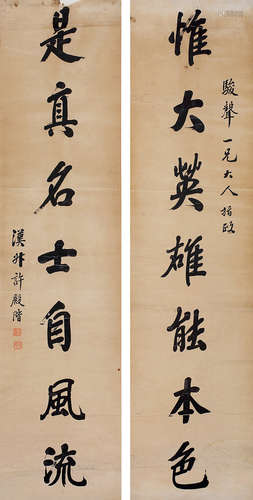 惟大英雄能本色
駿聲一兄大人指政
是真名士自風流
漢升許殿階